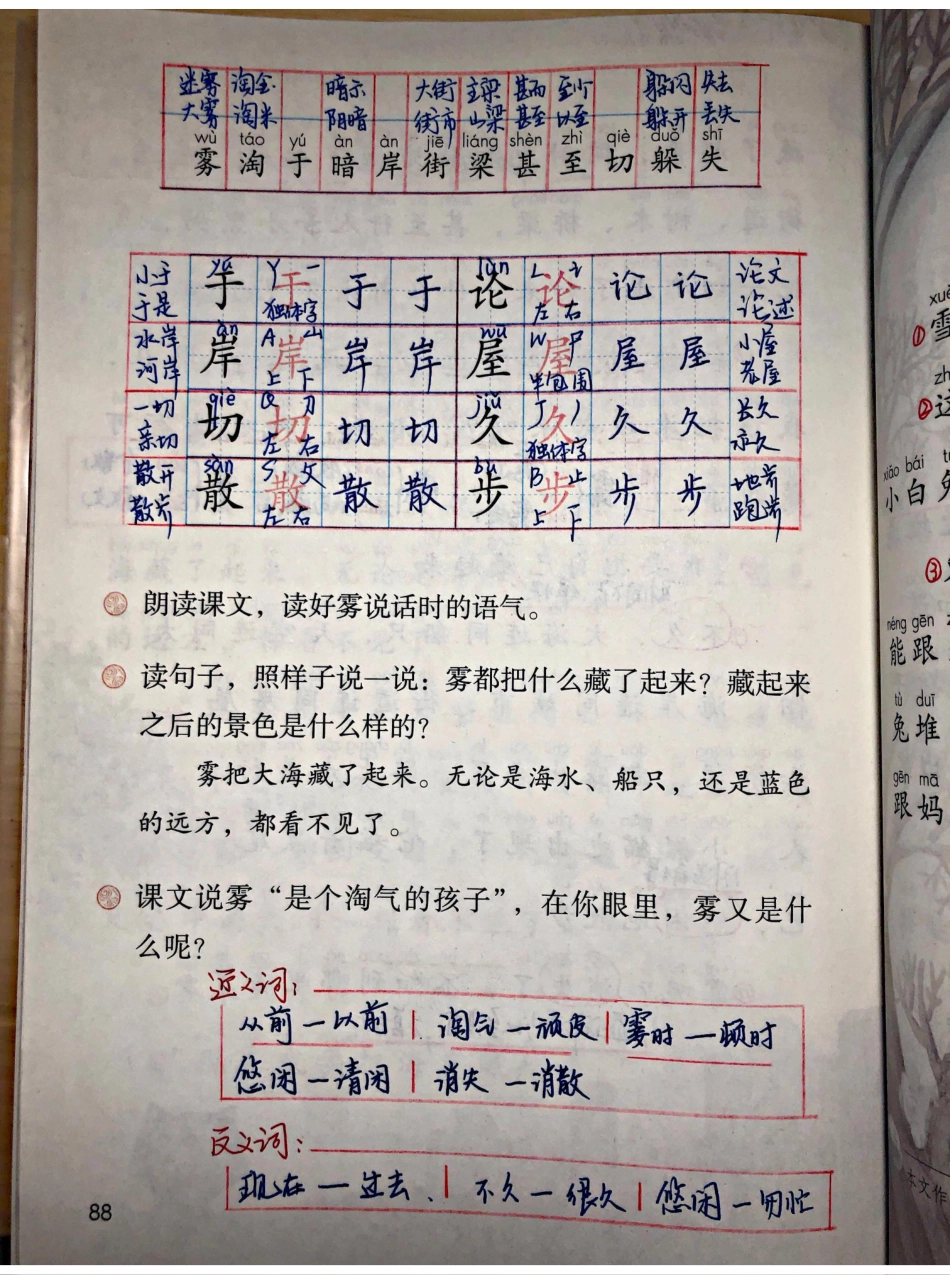 迷雾 淘金 暗示 大街 主梁 甚而 至少 躲闪 失去
大雾 淘米 阴暗 街市 山梁 甚至 以至 躲开 丢失
wù táo yú àn àn jiē liáng shèn zhì qiè duǒ shī
雾 淘 于 暗 岸 街 梁 甚 至 切 躲 失
小于 yú Y 一 lùn L 讠 论文
于 于 于 于 论 论 论 论
于是 独体字 左 右 论述
水岸 àn A 山 wū W 尸 小屋
岸 岸 岸 岸 屋 屋 屋 屋
河岸 上 下 半包围 老屋
一切 qiè Q 刀 jiǔ J 丿 长久
切 切 切 切 久 久 久 久
亲切 左 右 独体字 永久
散开 sàn S 攵 bù B 止 地步
散 散 散 散 步 步 步 步
散步 左 右 上 下 跑步
朗读课文，读好雾说话时的语气。
读句子，照样子说一说：雾都把什么藏了起来？藏起来
之后的景色是什么样的？
雾把大海藏了起来。无论是海水、船只，还是蓝色
的远方，都看不见了。
课文说雾“是个淘气的孩子”，在你眼里，雾又是什
么呢？
近义词：
从前—以前 淘气—顽皮 霎时—顿时
悠闲—清闲 消失—消散
反义词：
现在—过去、 不久—很久 悠闲—匆忙
88
①雪
②这
xiǎo bái
小白兔
③
néng gēn
能跟
tù duī
兔堆
gēn mā
跟妈